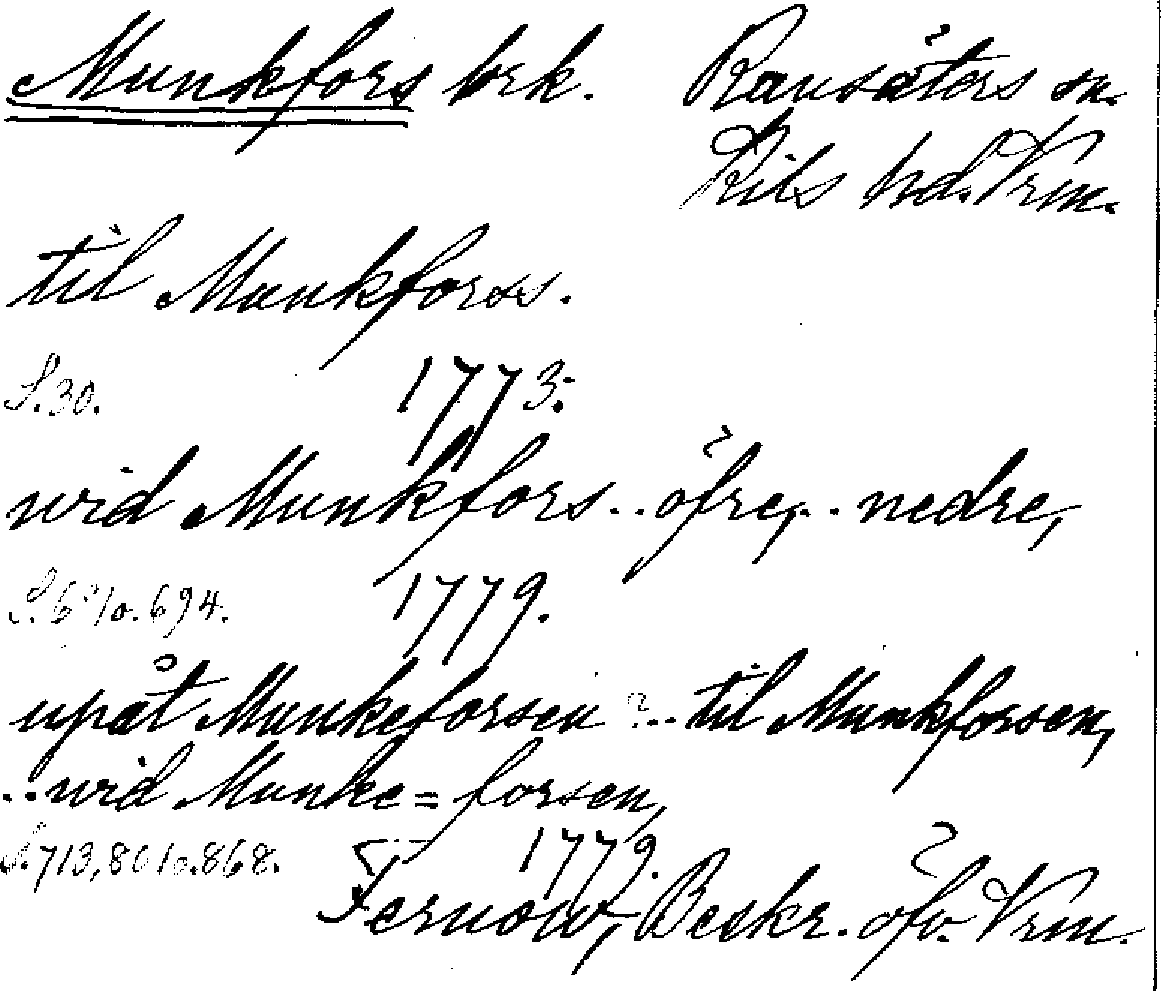 Munkfors brk. Ransäters sn.
Kils hd. Vrm.
til Munkforss.
S. 30. 1773.
wid Munkfors .. öfre, .. nedre,
1779.
upåt Munkeforsen .. til Munkforsen,
.. wid Munke= forsen,
S. 713, 801 o. 868. 1779.
Fernow, Beskr. öfv. Vrm.